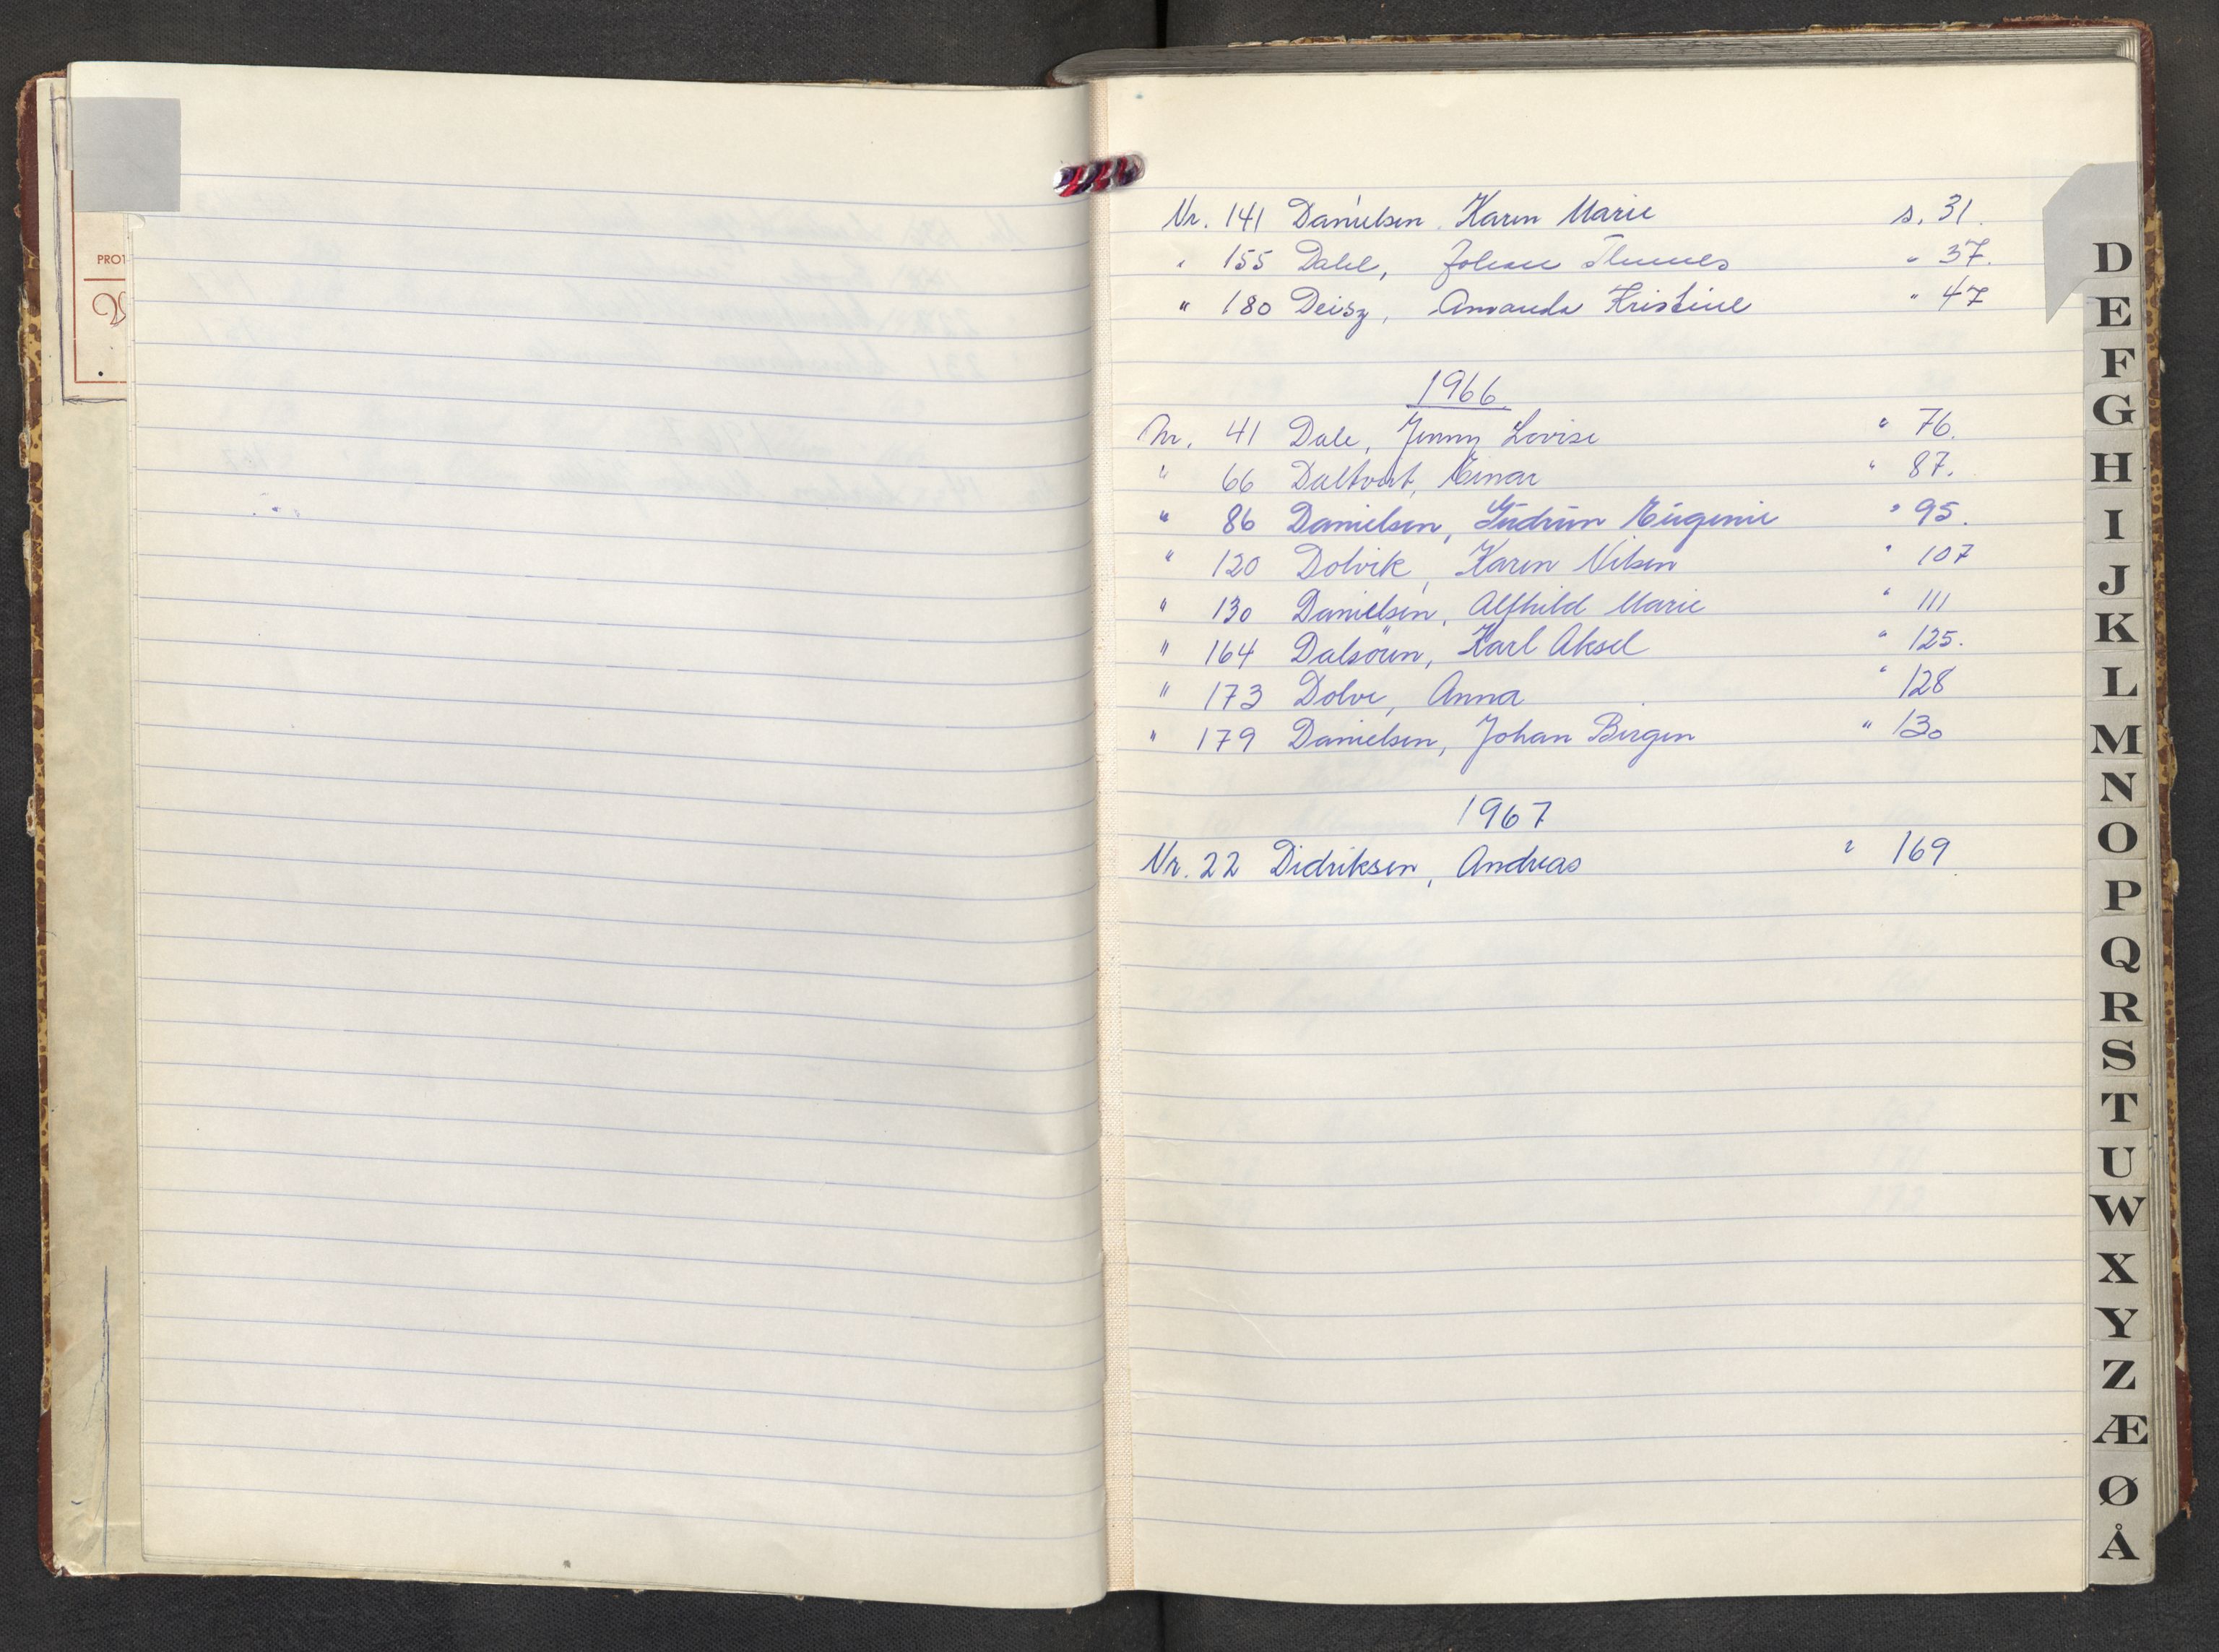 PROT
Nr. 141 Danielsen, Karen Marie s. 31.
" 155 Dahl, Johan " 37.
" 180 Deisz, Amanda Kristine " 47
1966
Nr. 41 Dale, Jenny Lovise " 76.
" 66 Daltveit, Einar " 87.
" 86 Danielsen, Gudrun Eugenie " 95.
" 120 Dolvik, Karen Nilsen " 107
" 130 Danielsen, Alfhild Marie " 111
" 164 Dalsören, Karl Aksel " 125.
" 173 Dolve, Anna " 128
" 179 Danielsen, Johan Birger " 130
1967
Nr. 22 Didriksen, Andreas " 169
D
E
F
G
H
I
J
K
L
M
N
O
P
Q
R
S
T
U
W
X
Y
Z
Æ
Ø
Å